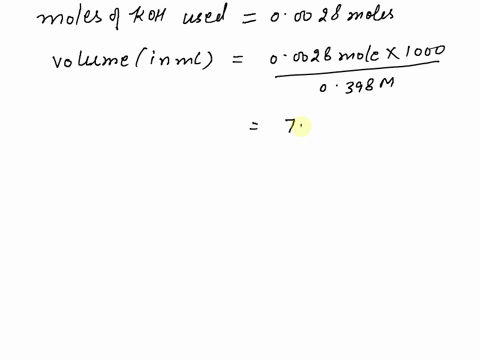 moles of KOH used = 0.0028 moles
volume (in mL) = 0.0028 mole X 1000
0.398 M
= 7.